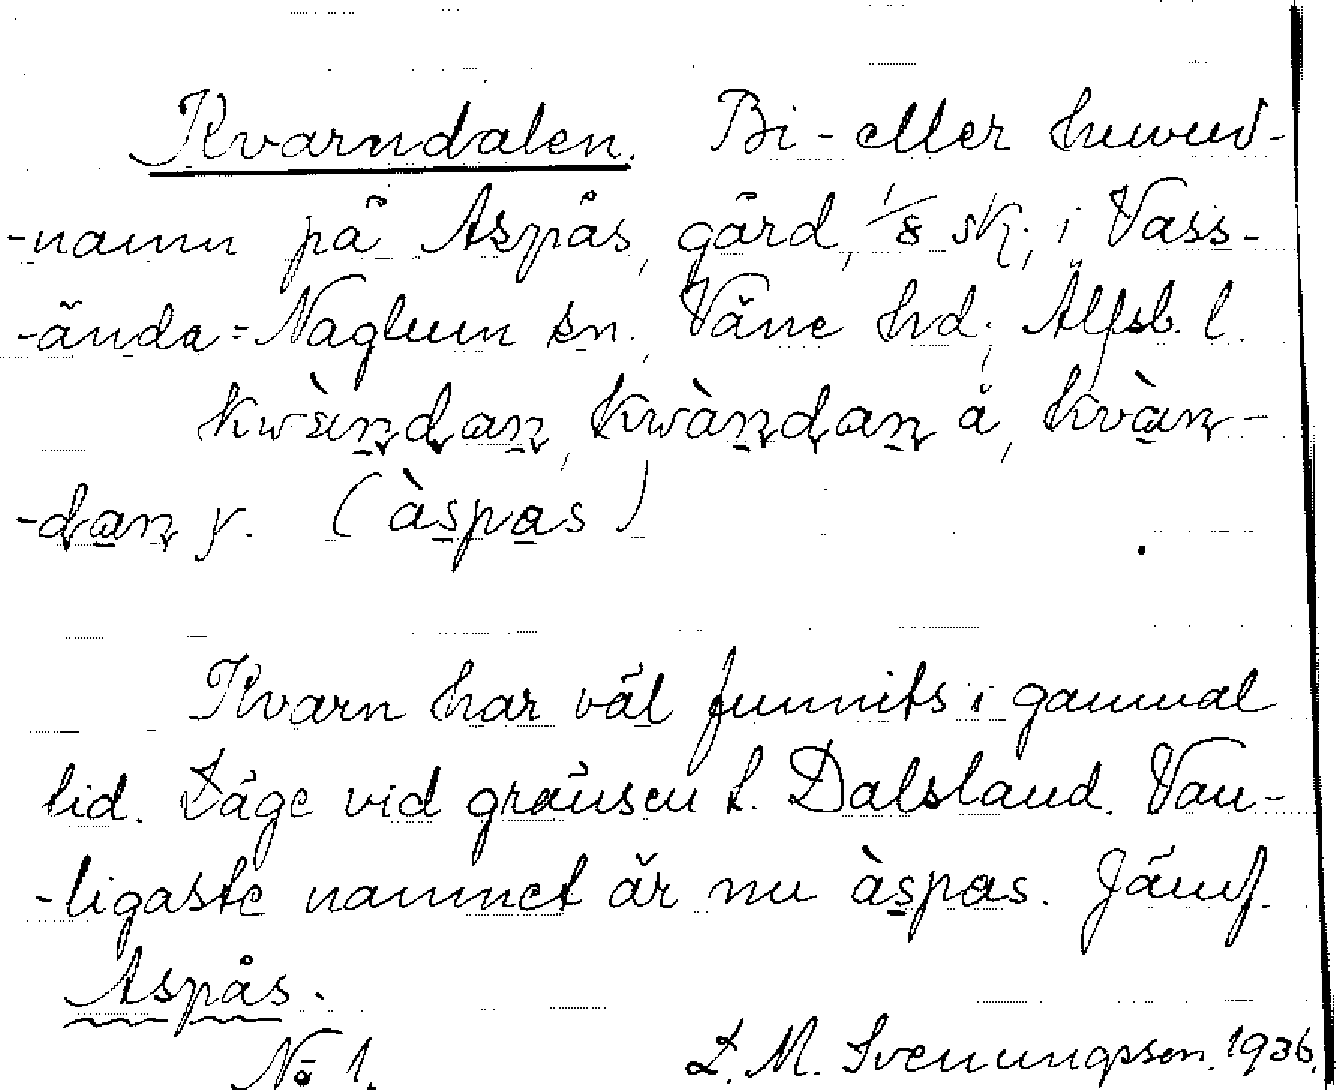 Kvarndalen. Bi- eller huvud-
-namn på Aspås, gård, 1/8 sk., i Vass-
-ända-Naglum sn., Väne hd., Älfsb. l.
kwàndan, kwàndan å, kvàn-
-dan y. (àspas)
Kvarn har väl funnits i gammal
tid. Läge vid gränsen t. Dalsland. Van-
-ligaste namnet är nu àspas. Jämf.
Aspås.
No 1. L. M. Svenungsson. 1936.